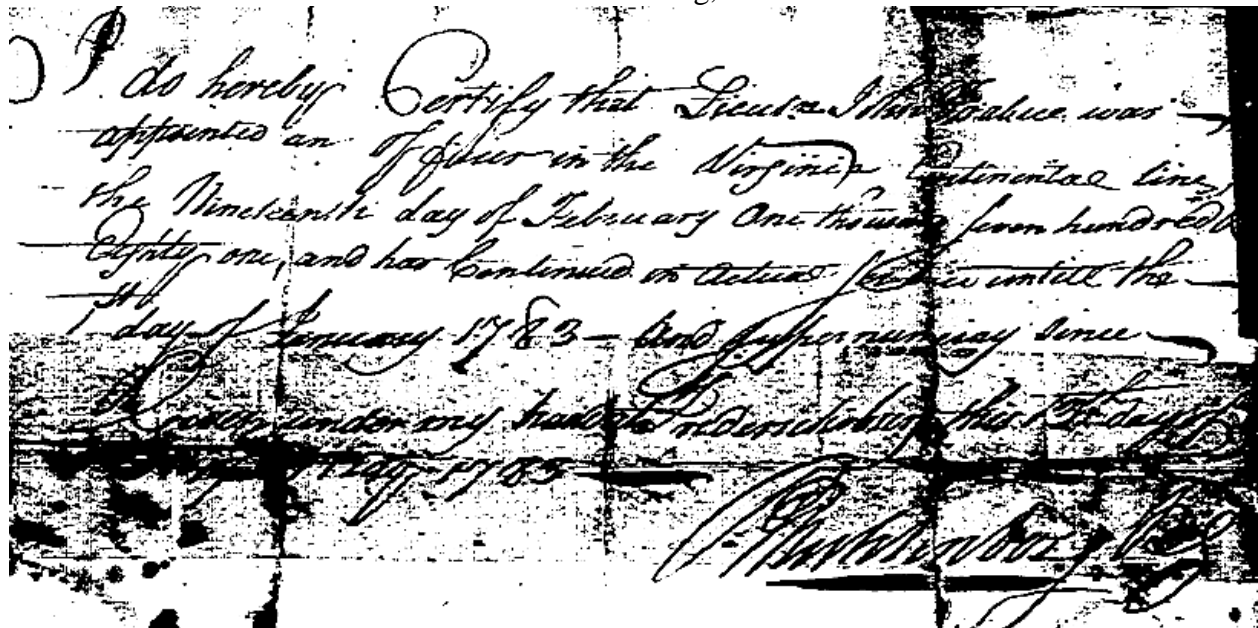 I do hereby Certify that Lieutn. John Wallace was
appointed an Officer in the Virginia Continental line,
the Nineteenth day of February One thousand seven hundred &
Eighty one, and has Continued in actual Service untill the
1st day of January 1783 — and supernumeray since
Given under my hand at Fredericksburg this 1st day of
May 1783
P Muhlenberg BG